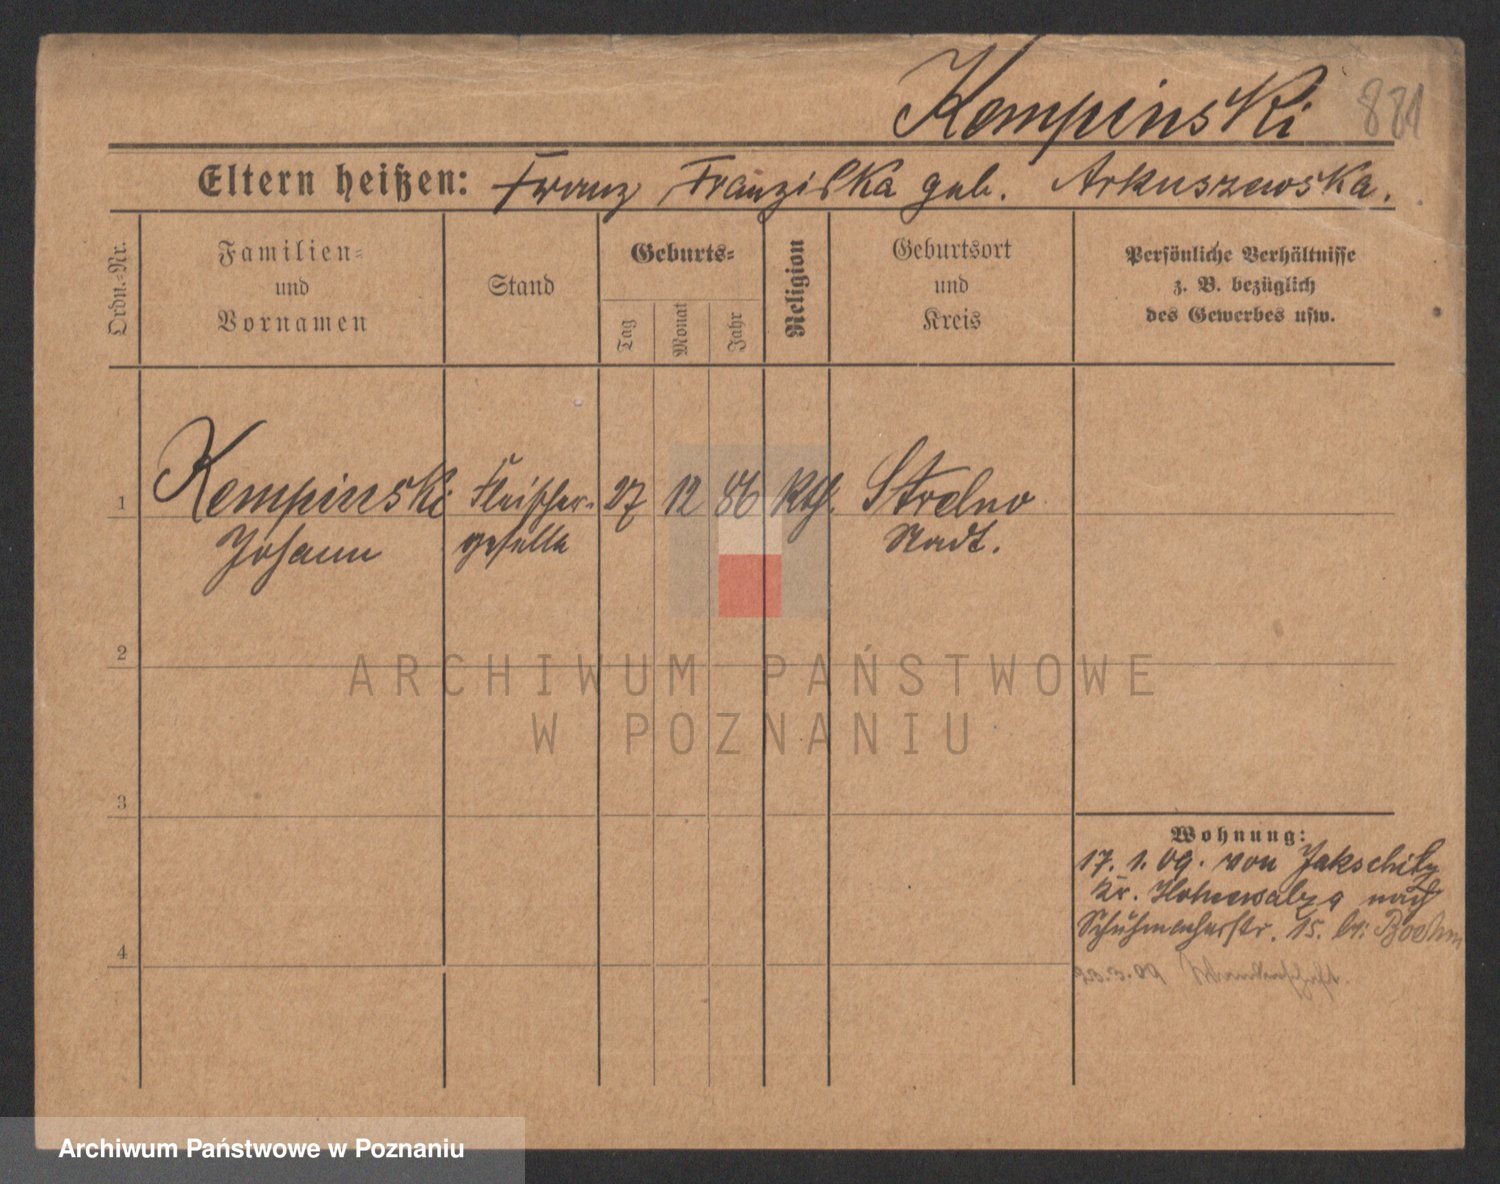 Kempinski 881
Eltern heißen: Franz Franziska geb. Arkuszewska.
Ordn.-Nr.
Familien-
und
Vornamen
Stand
Geburts-
Tag
Monat
Jahr
Religion
Geburtsort
und
Kreis
Persönliche Verhältnisse
z. B. bezüglich
des Gewerbes usw.
1 Kempinski Fleischer- 27 12 86 Kth. Strelno
Johann geselle Stadt.
2
ARCHIWUM PAŃSTWOWE
W POZNANIU
3
Wohnung:
17. 1. 09. von Jakschitz
Kr. Hohensalza nach
Schuhmacherstr. 15. bei Boehm
4
Archiwum Państwowe w Poznaniu